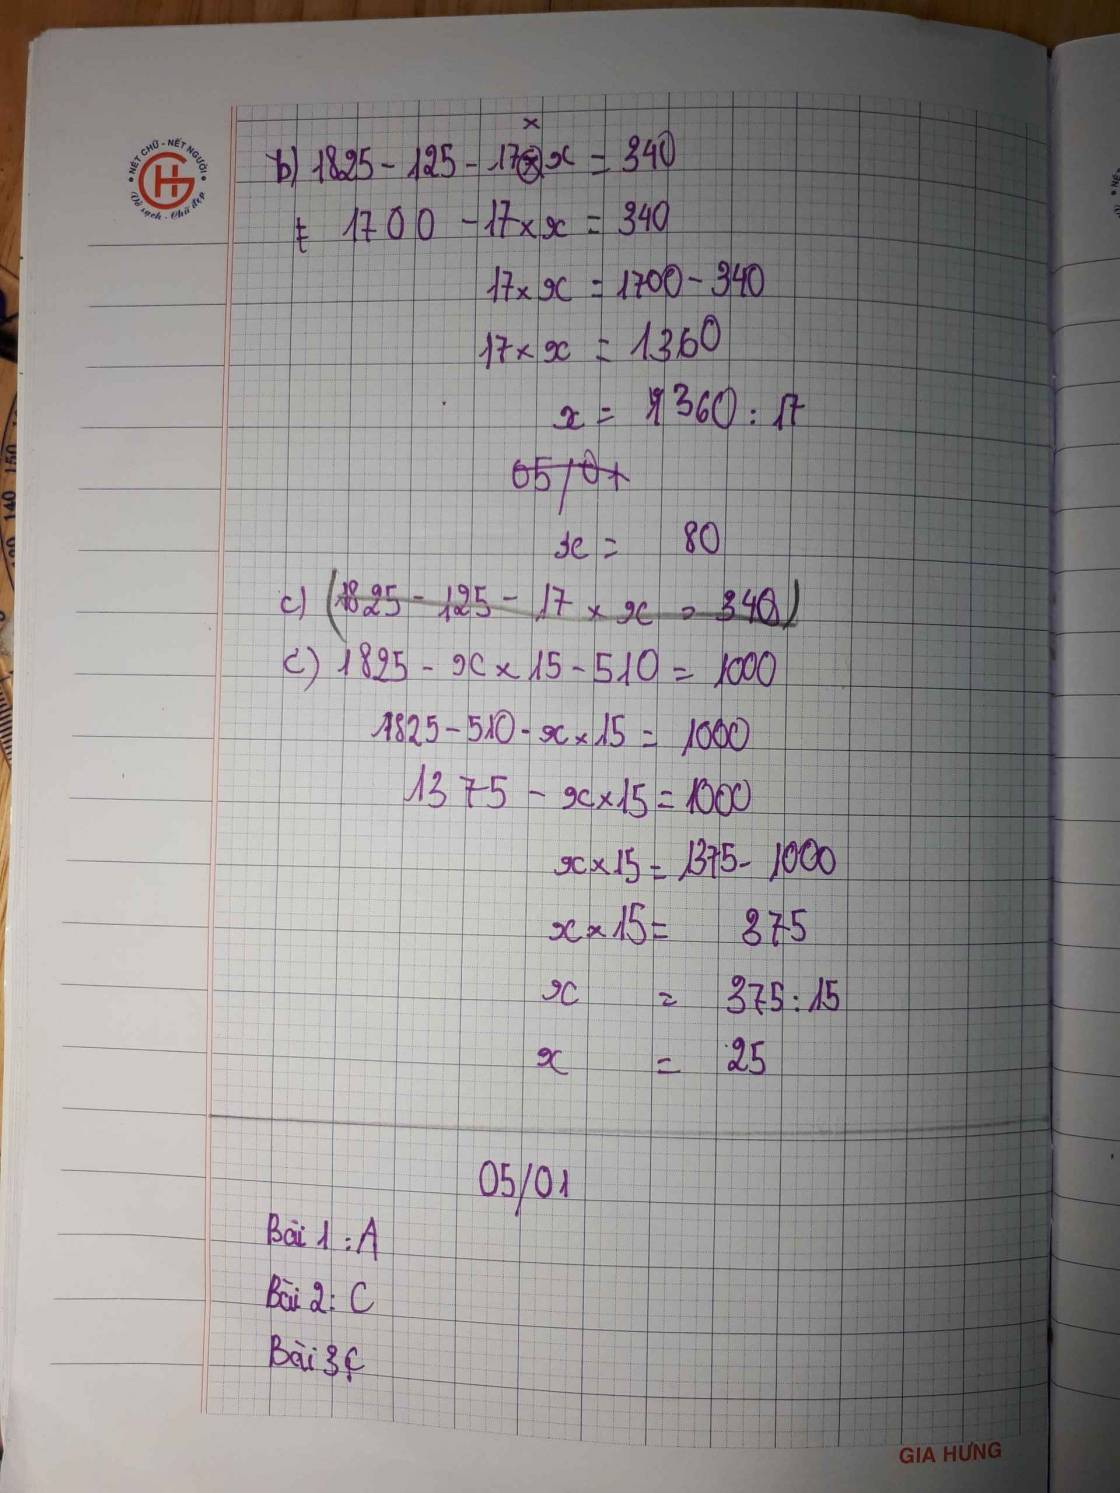 NÉT CHỮ - NẾT NGƯỜI
GH
Vở sạch - Chữ đẹp
×
b) 1825 - 125 - 17 × x = 340
1700 - 17 × x = 340
17 × x = 1700 - 340
17 × x = 1360
x = 1360 : 17
05/01
x = 80
c) (1825 - 125 - 17 × x = 340)
c) 1825 - x × 15 - 510 = 1000
1825 - 510 - x × 15 = 1000
1375 - x × 15 = 1000
x × 15 = 1375 - 1000
x × 15 = 375
x = 375 : 15
x = 25
05/01
Bài 1 : A
Bài 2 : C
Bài 3 C
GIA HƯNG
140 150